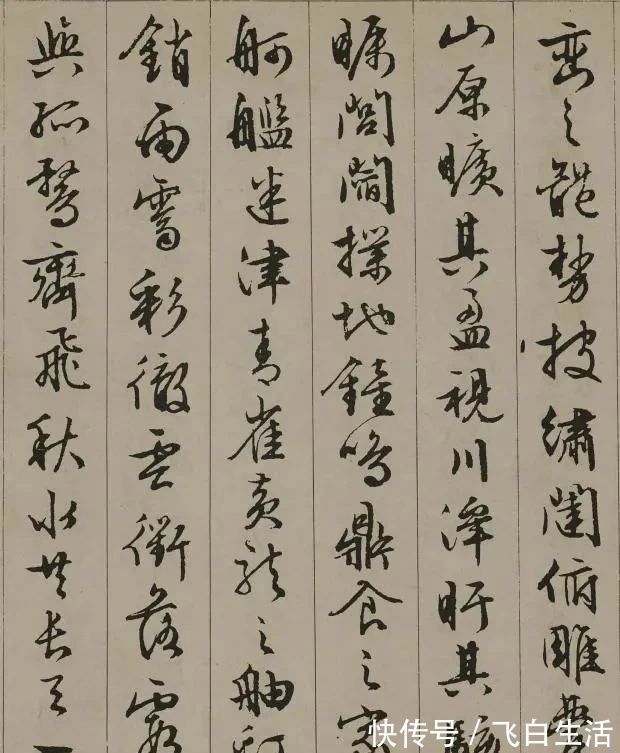 峦之體勢披繡闥俯雕甍
山原曠其盈視川澤盱其駭
矚閭閻撲地鐘鳴鼎食之家
舸艦迷津青雀黃龍之舳虹
銷雨霽彩徹雲衢落霞
與孤鶩齊飛秋水共長天一
快传号/飞白生活